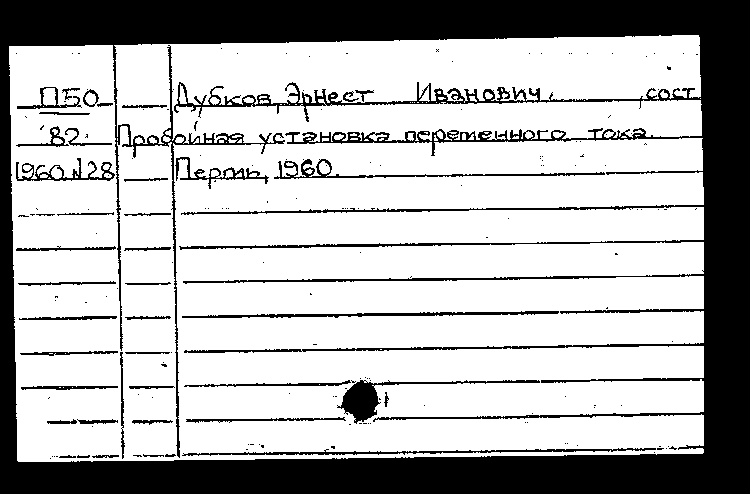 П50 Дубков, Эрнест Иванович. , сост
82 Пробойная установка переменного тока.
1960 N28 Пермь, 1960.